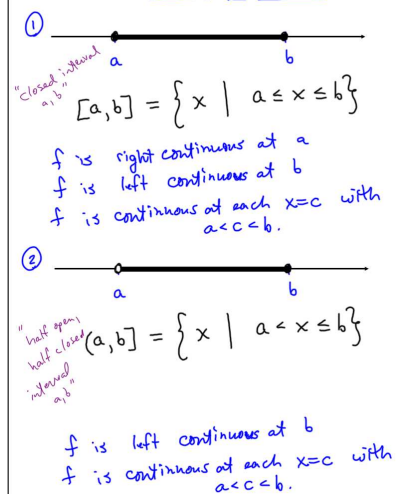 ①
a b
"closed interval
a,b"
[a,b] = { x | a ≤ x ≤ b}
f is right continuous at a
f is left continuous at b
f is continuous at each x=c with
a<c<b.
②
a b
"half open,
half closed
interval
a,b"
(a,b] = { x | a < x ≤ b}
f is left continuous at b
f is continuous at each x=c with
a<c<b.